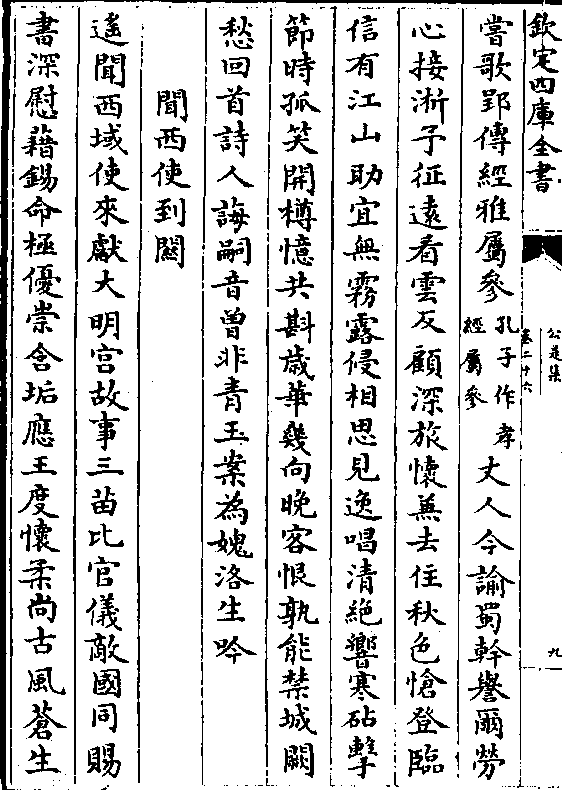 欽定四庫全書
公是集
卷二十六
九
嘗歌郢傳經雅屬參孔子作孝經屬參丈人今諭蜀幹譽爾勞
心接淅子征遠看雲反顧深旅懷兼去住秋色愴登臨
信有江山助宜無霧露侵相思見逸唱清絶響寒砧擊
節時孤笑開樽憶共斟歳華幾向晚客恨孰能禁城闕
愁回首詩人誨嗣音曾非青玉案為媿洛生吟
聞西使到闕
遙聞西域使來獻大明宮故事三苗比官儀敵國同賜
書深慰藉錫命極優崇含垢應王度懷柔尚古風蒼生